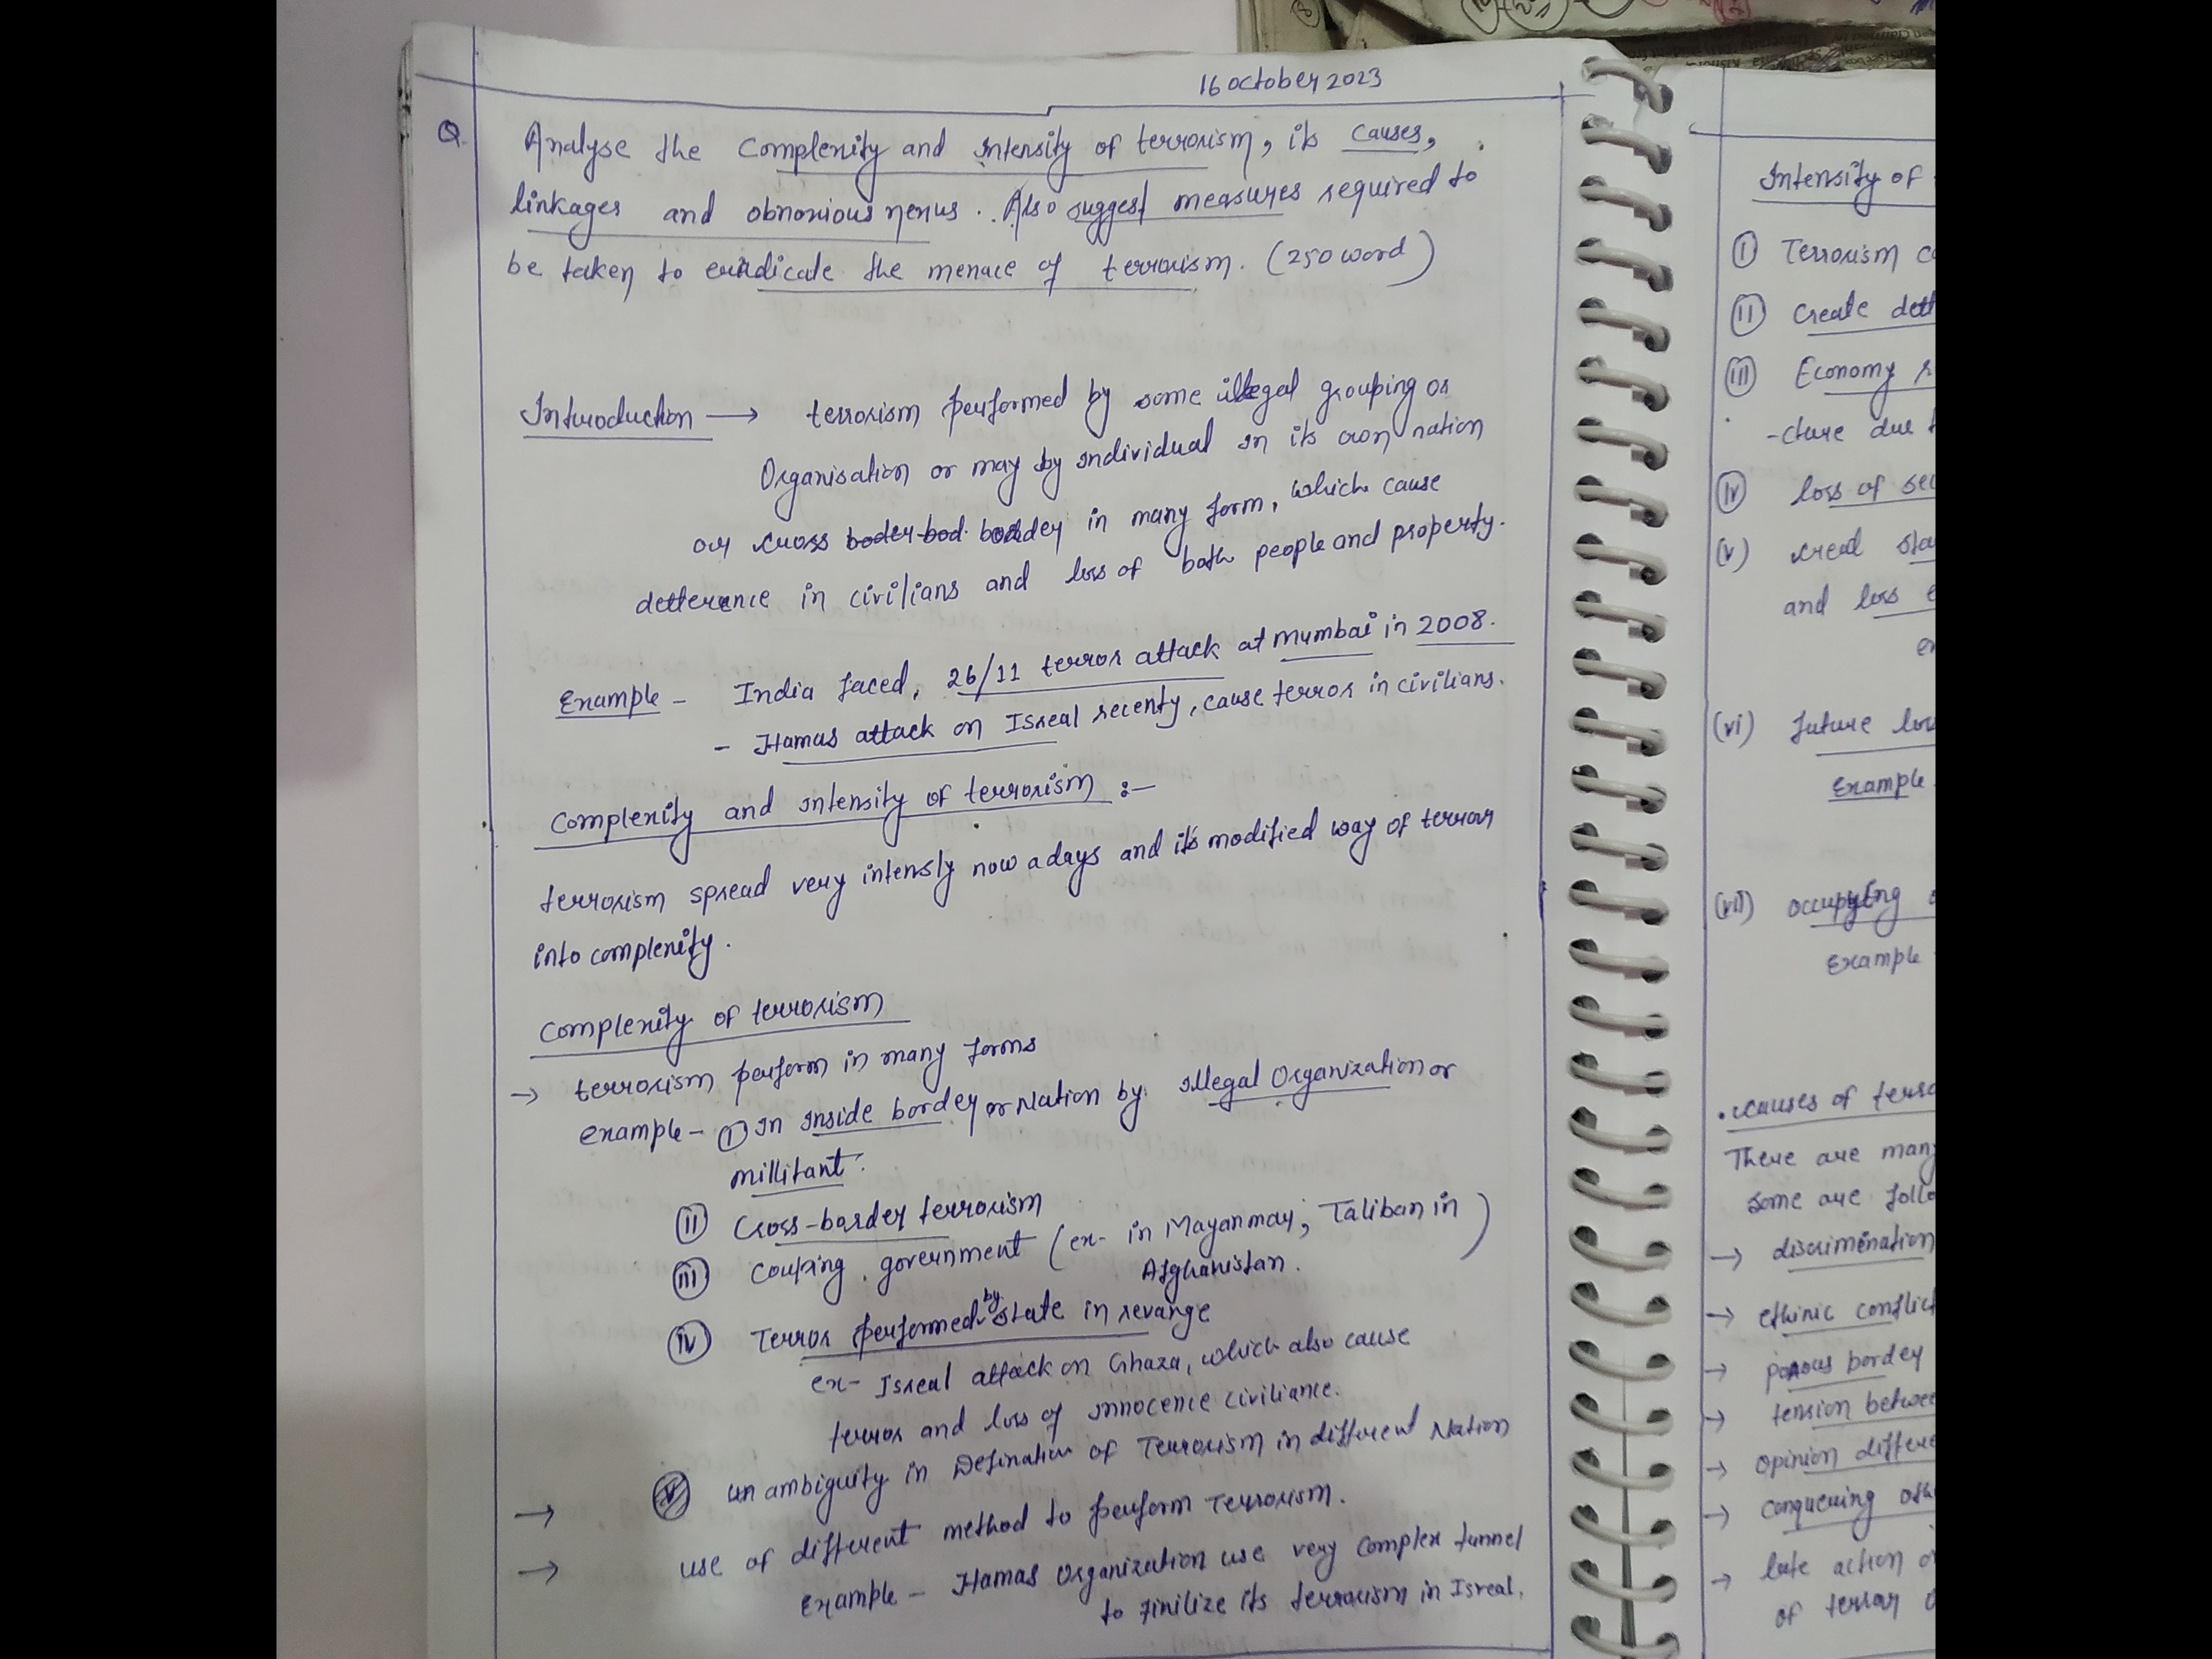 16 October 2023
Q. Analyse the Complexity and Intensity of terrorism, its causes,
linkages and obnoxious nexus. Also suggest measures required to
be taken to eradicate the menace of terrorism. (250 word)
Introduction → terrorism performed by some illegal grouping or
Organisation or may by individual in its own nation
our cross boder bod border in many form, which cause
detterence in civilians and loss of both people and property.
Example - India faced, 26/11 terror attack at Mumbai in 2008.
- Hamas attack on Isreal recenty, cause terror in civilians.
Complexity and Intensity of terrorism :-
terrorism spread very intensly now a days and its modified way of terror
into complexity.
Complexity of terrorism
→ terrorism perform in many forms
example - (I) In Inside border or Nation by illegal Organization or
millitant.
(II) Cross-border terrorism
(III) Couping government (ex- in Mayanmar, Taliban in
Afghanistan.)
(IV) Terror performed by state in revange
ex- Isreal attack on Ghaza, which also cause
terror and loss of innocence civiliance.
→ (V) un ambiguity in Defination of Terrorism in different Nation
→ use of different method to perform Terrorism.
Example - Hamas Organization use very complex tunnel
to finilize its terrorism in Isreal.
Intensity of
(I) Terrorism
(II) Create
(III) Economy
-cture due
(IV) loss of
(V)
and loss
(VI) future
Example
(VII) occupying
Example
• Causes of
There are many
some are
→ discrimination
→ ethinic
→ porous border
→ tension
→ opinion
→ conquering
→ late action
of terror